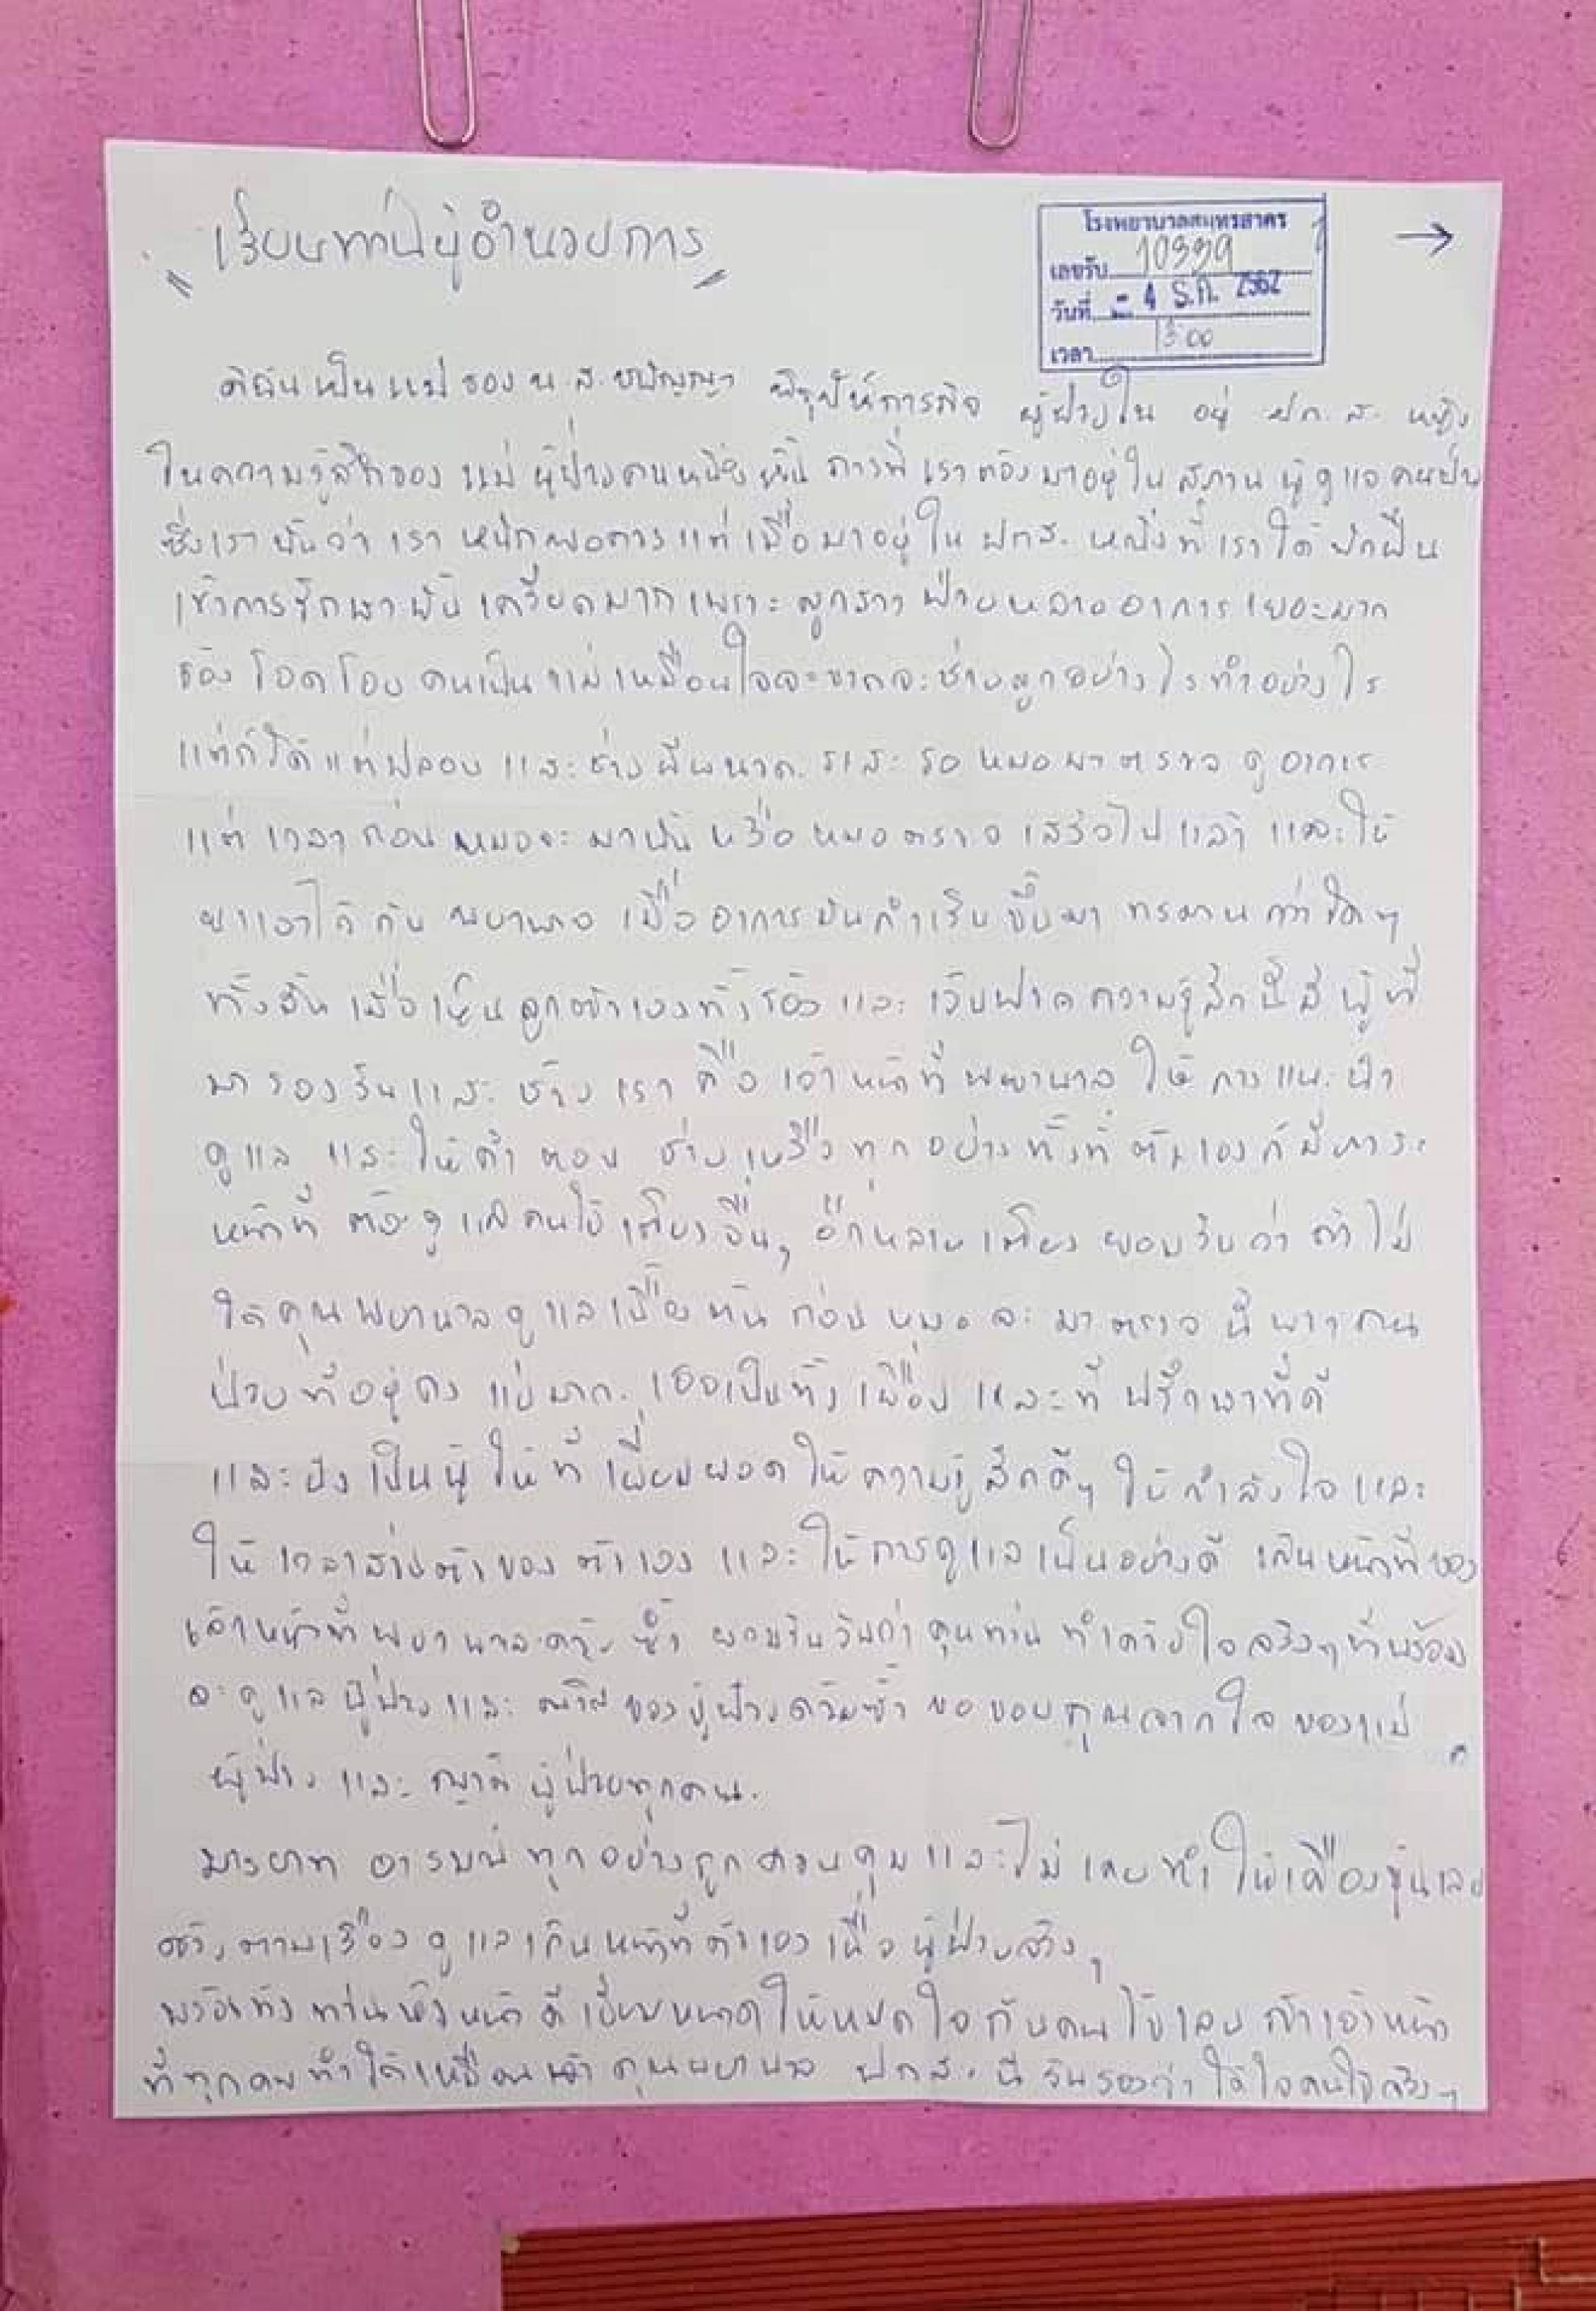 "เรียนท่านผู้อำนวยการ"
โรงพยาบาลสมุทรสาคร
เลขรับ 10339
วันที่ - 4 ธ.ค. 2562
เวลา 13:00
→
ดิฉันเป็นแม่ของ น.ส. ผู้ป่วยใน อยู่ ปก.ส. หญิง
ในความรู้สึกของ แม่ ผู้ป่วยคนหนึ่งนั้น การที่เราต้องมาอยู่ใน สถาน ผู้ดูแลคนป่วย
ซึ่งเรานั้นว่า เรา หนักพอควร แต่เมื่อมาอยู่ใน ปกส. หญิงที่เราได้
เข้าการรักษานั้นเครียดมากเพราะลูกสาวป่วยหลายอาการเยอะมาก
ร้องโอดโอย คนเป็นแม่เหมือนใจจะขาดจะช่วยลูกอย่างไรทำอย่างไร
แต่ก็ได้แต่ปลอบ และช่วยบีบนวด และรอหมอมาตรวจดูอาการ
แต่เวลาก่อนหมอจะมานั้นหรือหมอตรวจเสร็จไปแล้ว และให้
ยาเอาไว้กับพยาบาล เมื่ออาการมันกำเริบขึ้นมา ทรมานกว่าใดๆ
ทั้งสิ้น เมื่อเห็นลูกตัวเองทั้งร้อง และ เจ็บปวดความรู้สึกนี้มีผู้ที่
มารองรับและช่วยเราคือเจ้าหน้าที่พยาบาล ให้การแนะนำ
ดูแล และให้คำตอบ ช่วยเหลือทุกอย่างทั้งที่ตัวเองก็มีภาระ
หน้าที่ต้องดูแลคนไข้เตียงอื่นๆ อีกหลายเตียง ยอมรับว่าถ้าไม่
ได้คุณพยาบาลดูแลเบื้องต้นก่อนหมอจะมาตรวจนี้ คน
ป่วยที่อยู่คงแย่มาก เธอเป็นทั้งเพื่อน และที่ปรึกษาที่ดี
และยังเป็นผู้ให้ที่เยี่ยมยอดให้ความรู้สึกดีๆ ให้กำลังใจและ
ให้เวลาส่วนตัวของตัวเอง และให้การดูแลเป็นอย่างดี เกินหน้าที่ของ
เจ้าหน้าที่พยาบาลด้วยซ้ำ ยอมรับ ว่าคุณท่านทำด้วยใจจริงๆที่พร้อม
จะดูแลผู้ป่วยและ ญาติของผู้ป่วยด้วยซ้ำ ขอขอบคุณจากใจของแม่
ผู้ป่วย และ ญาติผู้ป่วยทุกคน.
มารยาท อารมณ์ทุกอย่างถูกควบคุมและไม่เคยทำให้เคืองขุ่นเลย
ดูแลเกินหน้าที่ตัวเองเพื่อผู้ป่วยจริงๆ
พร้อมทั้งท่านหัวหน้าดีเยี่ยม ให้หมดใจกับคนไข้เลย ถ้าเจ้าหน้า
ที่ทุกคนทำได้เหมือน คุณพยาบาล ปกส. นี้ รับรองว่าได้ใจคนไข้จริงๆ